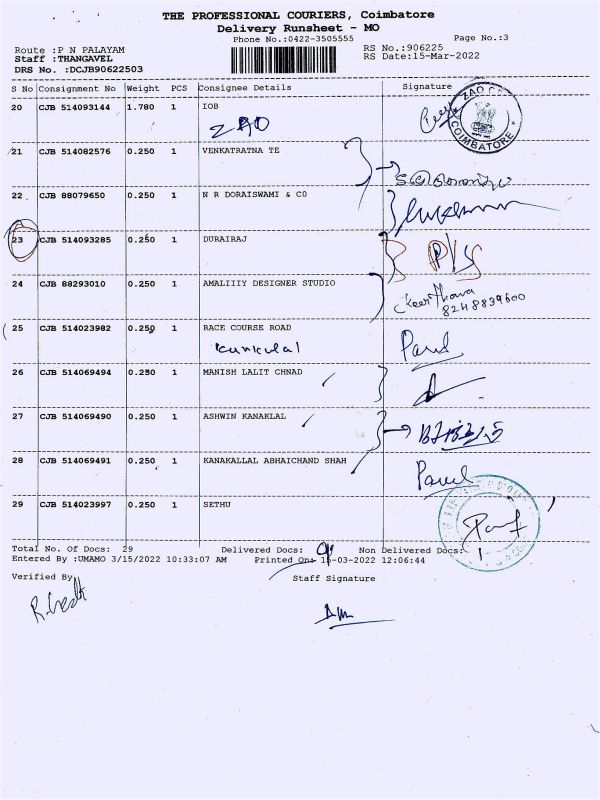 THE PROFESSIONAL COURIERS, Coimbatore
Delivery Runsheet - MO
Phone No.:0422-3505555 Page No.:3
Route :P N PALAYAM RS No.:906225
Staff :THANGAVEL RS Date:15-Mar-2022
DRS No. :DCJB90622503
S No Consignment No Weight PCS Consignee Details Signature
20 CJB 514093144 1.780 1 IOB
ZAO
ZAO
COIMBATORE
21 CJB 514082576 0.250 1 VENKATRATNA TE
22 CJB 88079650 0.250 1 N R DORAISWAMI & CO
23 CJB 514093285 0.250 1 DURAIRAJ
24 CJB 88293010 0.250 1 AMALIIIY DESIGNER STUDIO
Keerthana
8248839600
25 CJB 514023982 0.250 1 RACE COURSE ROAD
26 CJB 514069494 0.250 1 MANISH LALIT CHNAD
27 CJB 514069490 0.250 1 ASHWIN KANAKLAL
28 CJB 514069491 0.250 1 KANAKALLAL ABHAICHAND SHAH
29 CJB 514023997 0.250 1 SETHU
Total No. Of Docs: 29 Delivered Docs: Non Delivered Docs:
Entered By :UMAMO 3/15/2022 10:33:07 AM Printed On: 15-03-2022 12:06:44
Verified By Staff Signature